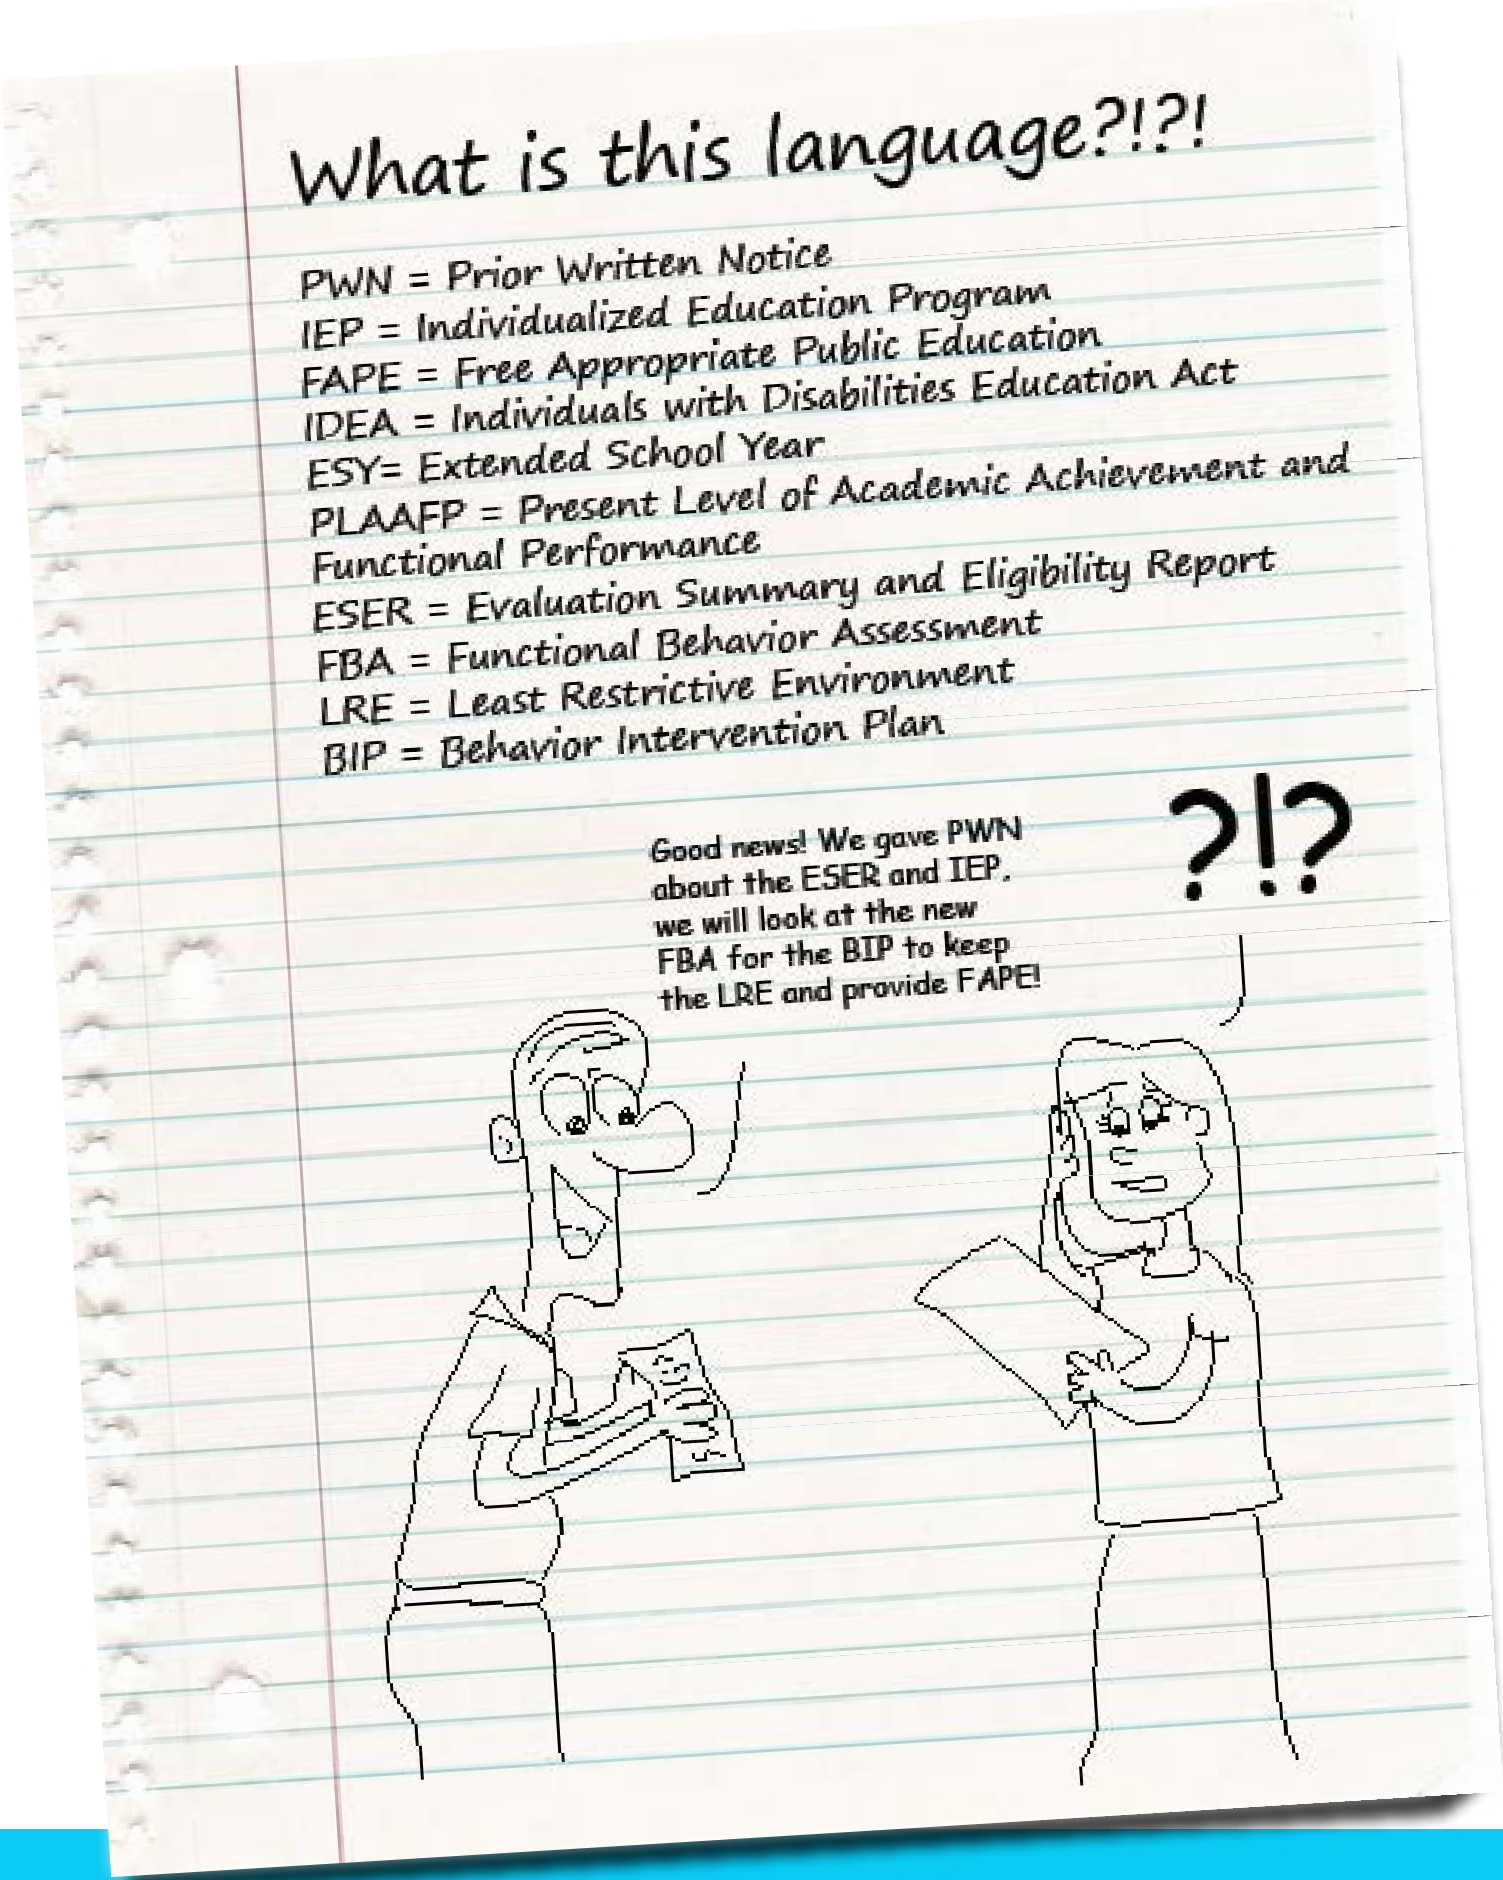 What is this language?!?!
PWN = Prior Written Notice
IEP = Individualized Education Program
FAPE = Free Appropriate Public Education
IDEA = Individuals with Disabilities Education Act
ESY= Extended School Year
PLAAFP = Present Level of Academic Achievement and
Functional Performance
ESER = Evaluation Summary and Eligibility Report
FBA = Functional Behavior Assessment
LRE = Least Restrictive Environment
BIP = Behavior Intervention Plan
?!?
Good news! We gave PWN
about the ESER and IEP.
we will look at the new
FBA for the BIP to keep
the LRE and provide FAPE!